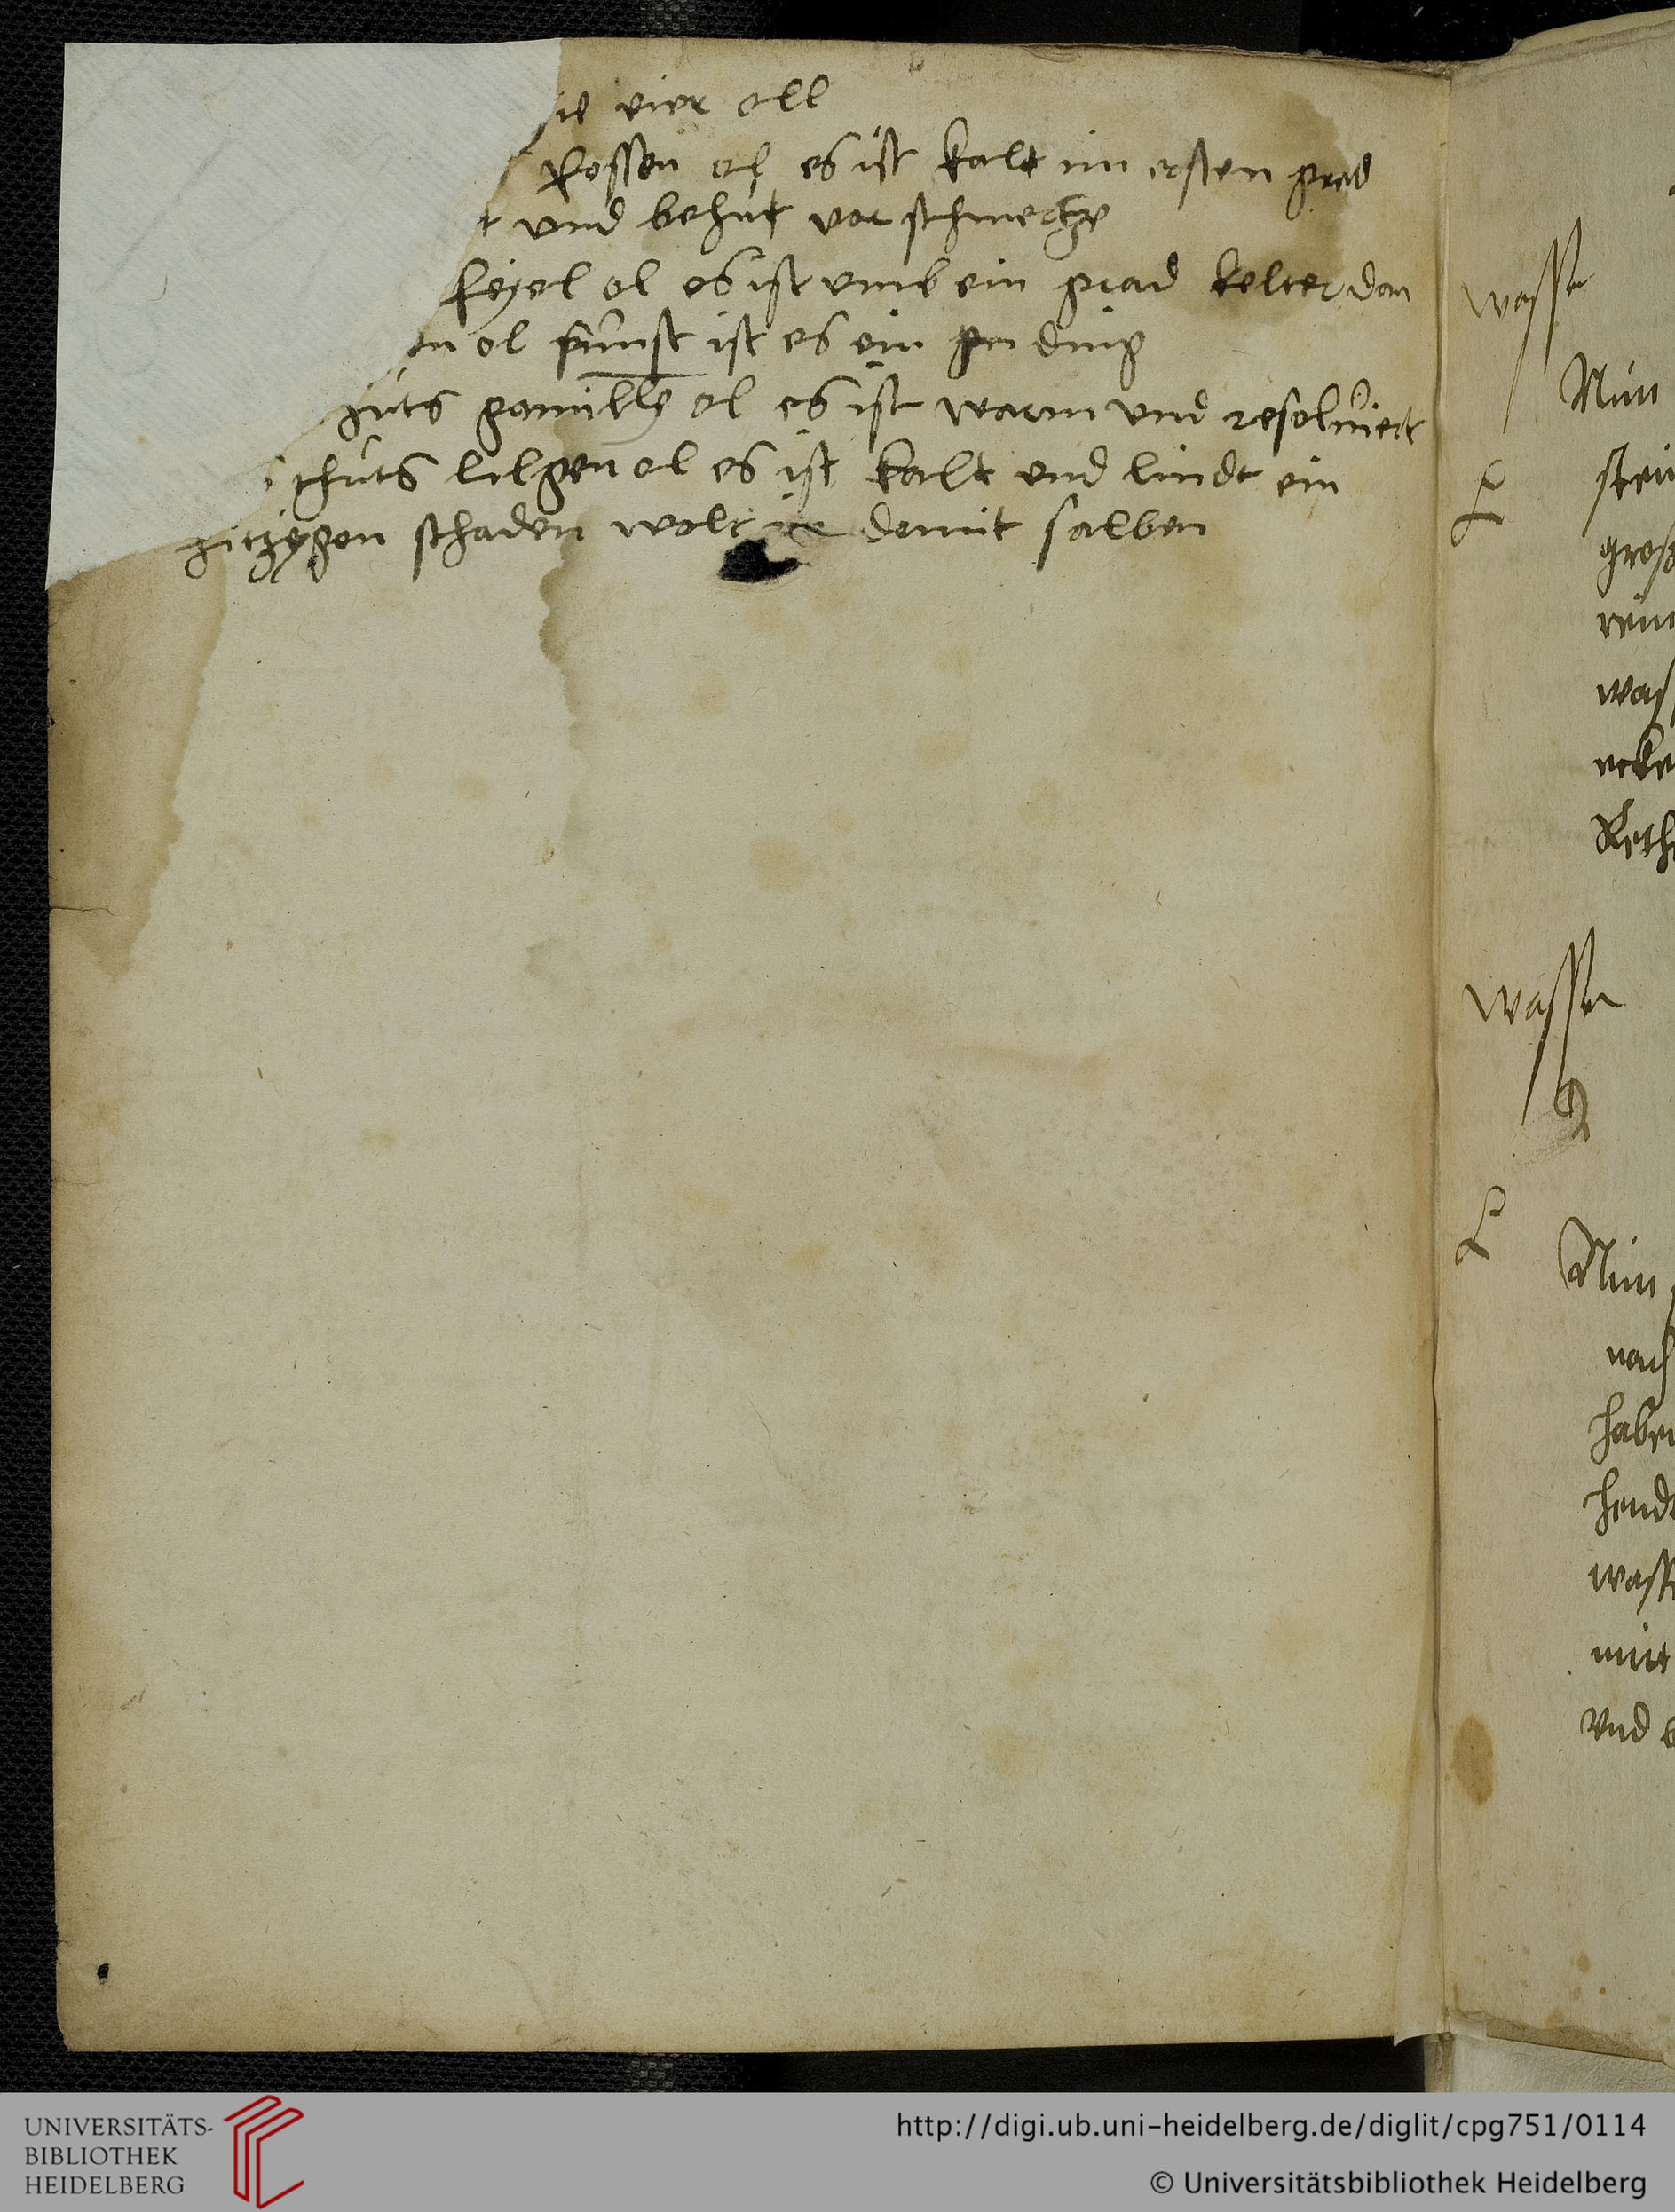 vier oll
Rossen ol es ist kalt im ersten grad
t vnd behut vor schmertze
feyel ol es ist vmb ein grad kelter dan
en ol sunst ist es ein ding
guts gamille ol es ist warm vnd resolviert
guts lilgen ol es ist kalt vnd lindt ein
hitzygen schaden wolt damit salben
wasser
Nim
stein
gros
rein
was
Reth
wasser
2
Nim
nach
haben
hend
wass
mitt
vnd
UNIVERSITÄTS-
BIBLIOTHEK
HEIDELBERG
http://digi.ub.uni-heidelberg.de/diglit/cpg751/0114
© Universitätsbibliothek Heidelberg